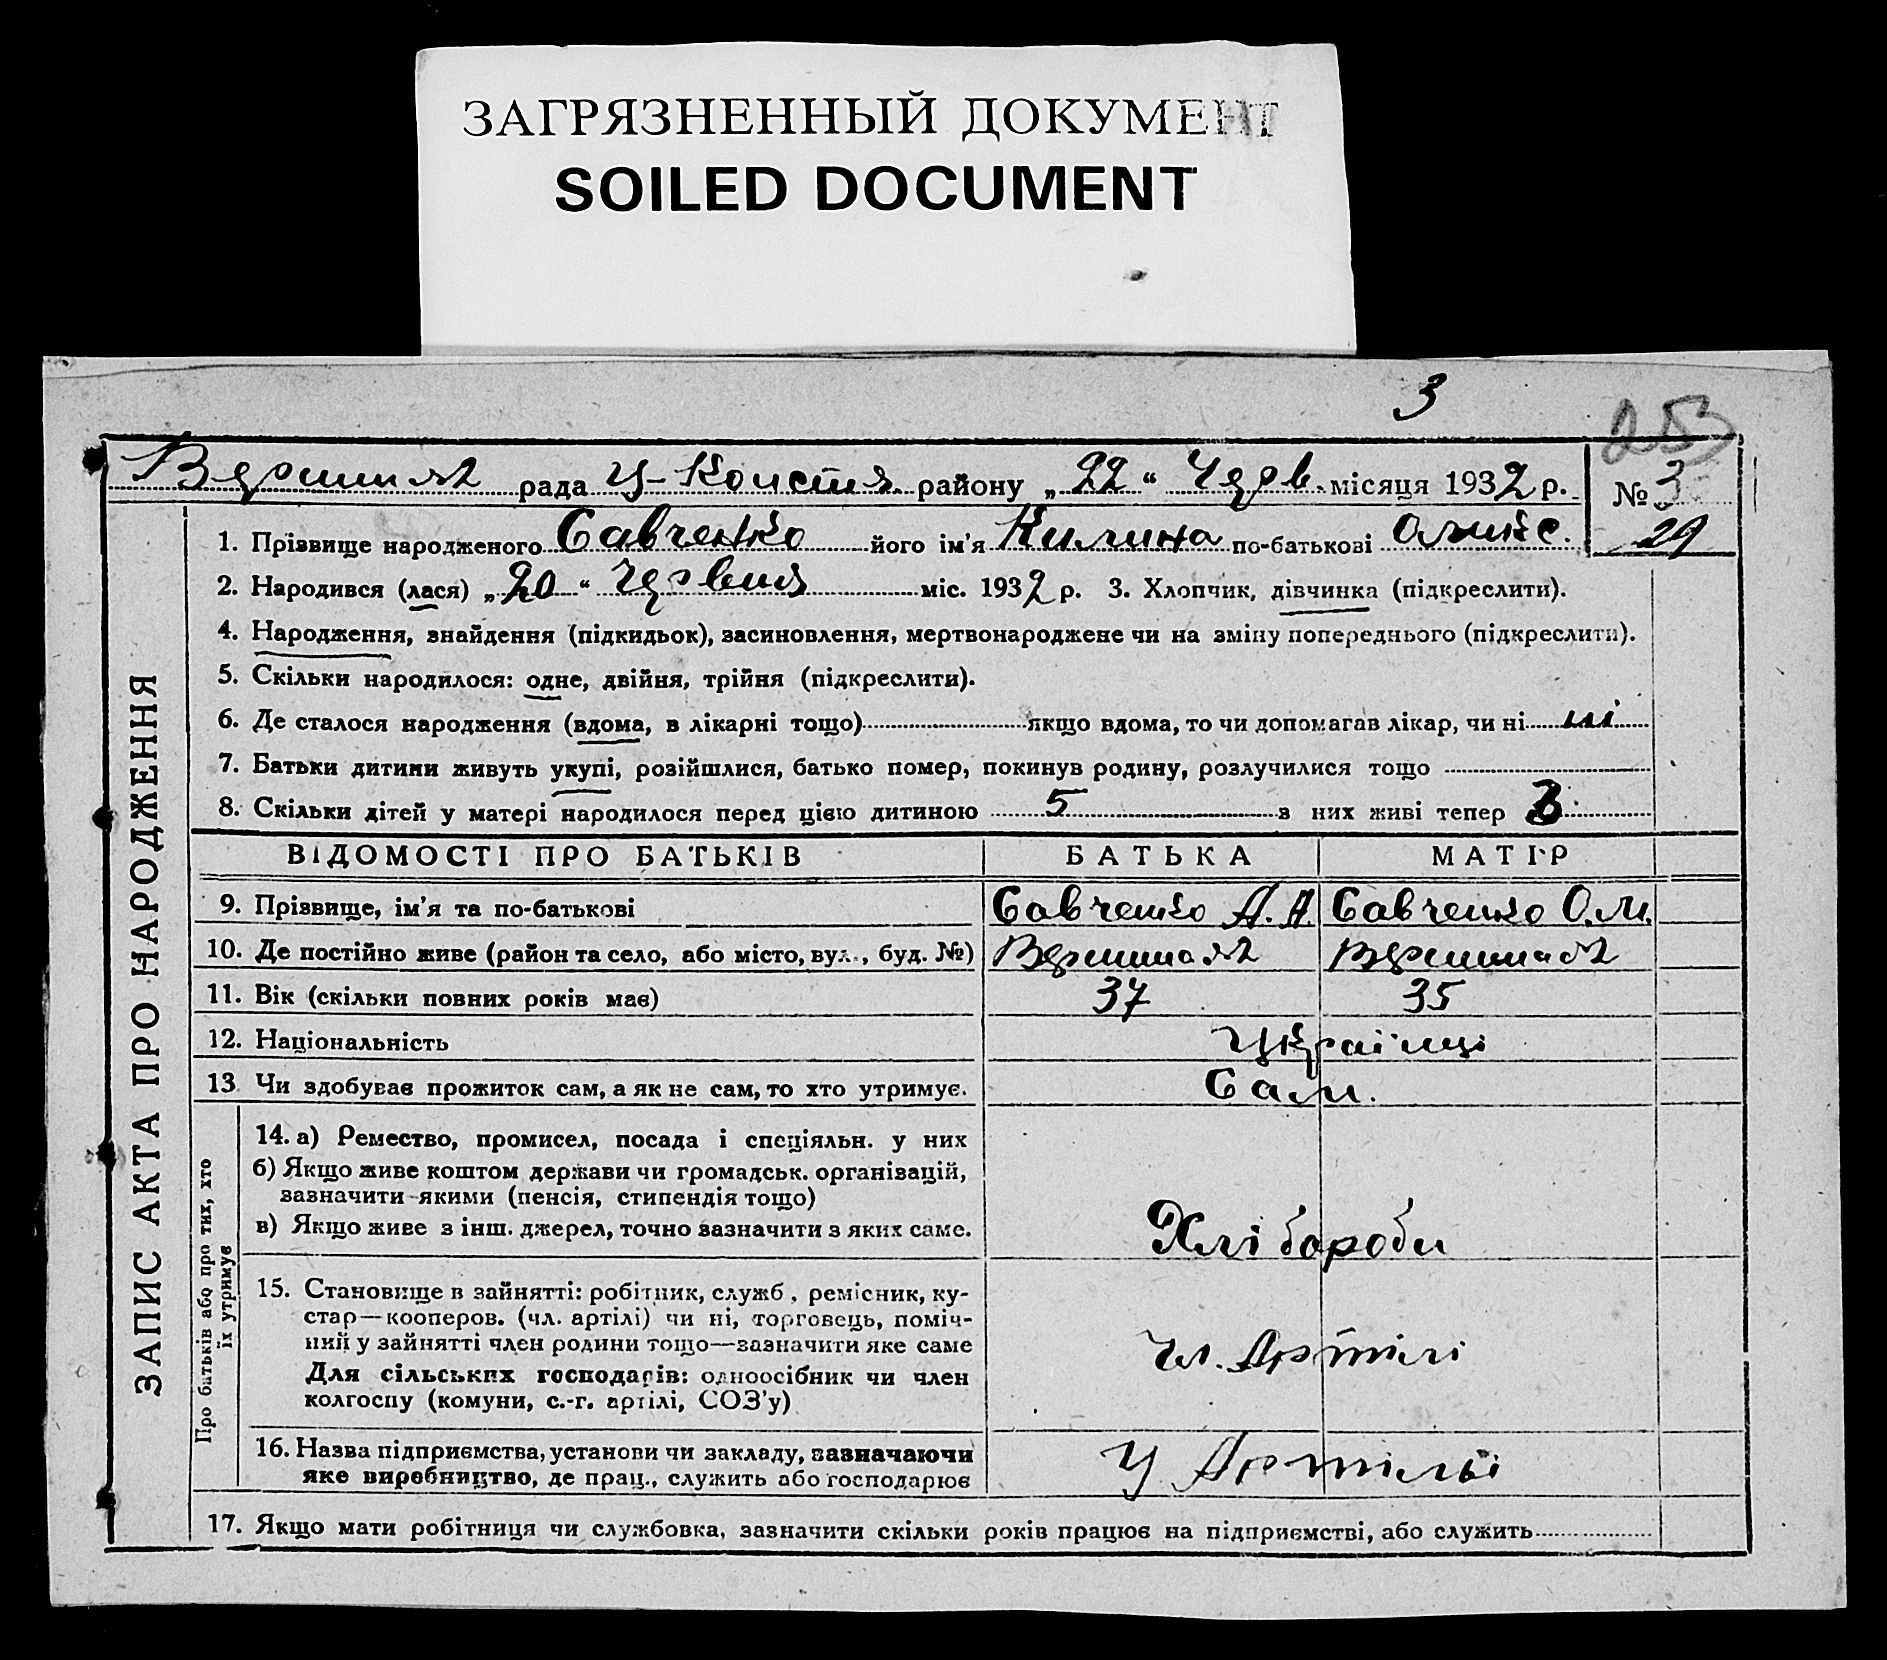 ЗАГРЯЗНЕННЫЙ ДОКУМЕНТ
SOILED DOCUMENT
3
253
рада района „22“ Черв. місяця 1932 р.
№ 3
29
ЗАПИС АКТА ПРО НАРОДЖЕННЯ
1. Прізвище народженого Савченко його ім'я Килина по-батькові
2. Народився (лася) „20“ Червня міс. 1932 р. 3. Хлопчик, дівчинка (підкреслити).
4. Народження, знайдення (підкидьок), засиновлення, мертвонароджене чи на зміну попереднього (підкреслити).
5. Скільки народилося: одне, двійня, трійня (підкреслити).
6. Де сталося народження (вдома, в лікарні тощо) якщо вдома, то чи допомагав лікар, чи ні ні
7. Батьки дитини живуть укупі, розійшлися, батько помер, покинув родину, розлучилися тощо
8. Скільки дітей у матері народилося перед цією дитиною 5 з них живі тепер 3
ВІДОМОСТІ ПРО БАТЬКІВ БАТЬКА МАТІР
9. Прізвище, ім'я та по-батькові Савченко А. А. Савченко О. М.
10. Де постійно живе (район та село, або місто, вул., буд. №)
11. Вік (скільки повних років має) 37 35
12. Національність Українці
13 Чи здобуває прожиток сам, а як не сам, то хто утримує. Сам.
Про батьків або про тих, хто
їх утримує
14. а) Ремество, промисел, посада і спеціяльн. у них
б) Якщо живе коштом держави чи громадськ. організацій,
зазначити якими (пенсія, стипендія тощо)
в) Якщо живе з інш. джерел, точно зазначити з яких саме. Хлібороби
15. Становище в зайнятті: робітник, служб., ремісник, ку-
стар—кооперов. (чл. артілі) чи ні, торговець, поміч-
ний у зайнятті член родини тощо—зазначити яке саме
Для сільських господарів: одноосібник чи член
колгоспу (комуни, с.-г. артілі, СОЗ'у) чл. Артілі
16. Назва підприємства, установи чи закладу, зазначаючи
яке виробництво, де прац., служить або господарює У Артільі
17. Якщо мати робітниця чи службовка, зазначити скільки років працює на підприємстві, або служить